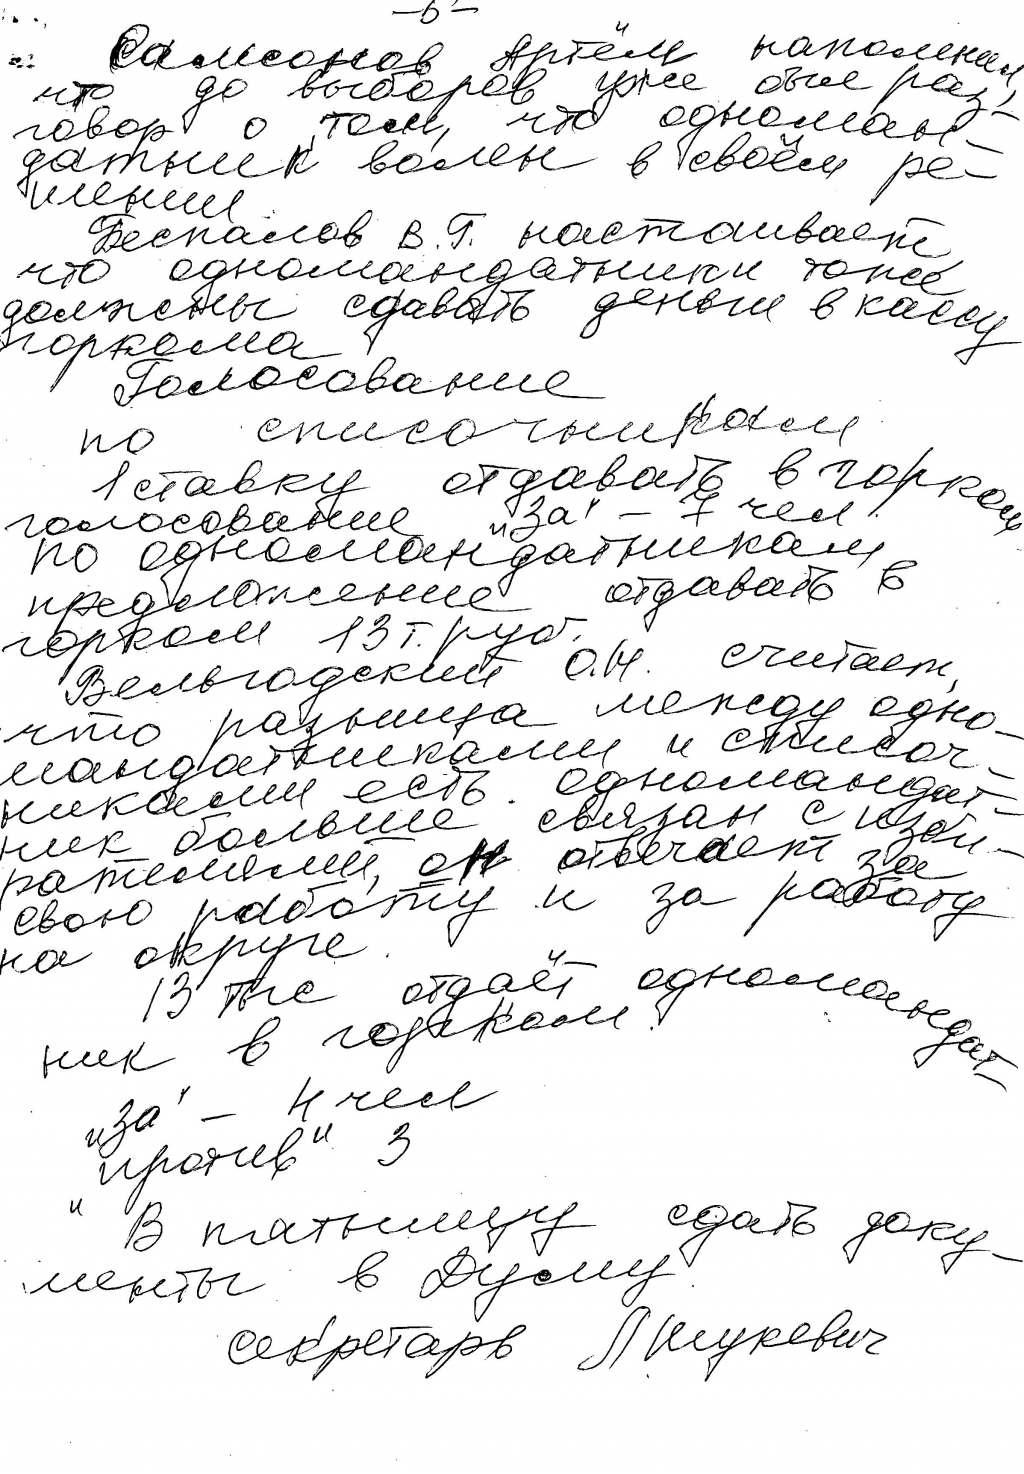 –6–
Самсонов Артём напомнил,
что до выборов уже был раз-
говор о том, что одноман-
датник волен в своём ре-
шении.
Беспалов В.Г. настаивает,
что одномандатники тоже
должны сдавать деньги в кассу
горкома
Голосование
по списочникам
1 ставку отдавать в горком
голосование "за" – 7 чел.
по одномандатникам
предложение отдавать в
горком 13 т. руб.
Вельгодский О.Н. считает,
что разница между одно-
мандатниками и списоч-
никами есть. одномандат-
ник больше связан с изби-
рателями, он отвечает за
свою работу и за работу
на округе.
13 тыс отдаёт одномандат-
ник в горком.
"за" – 4 чел
"против" 3
" В пятницу сдать доку-
менты в Думу.
секретарь